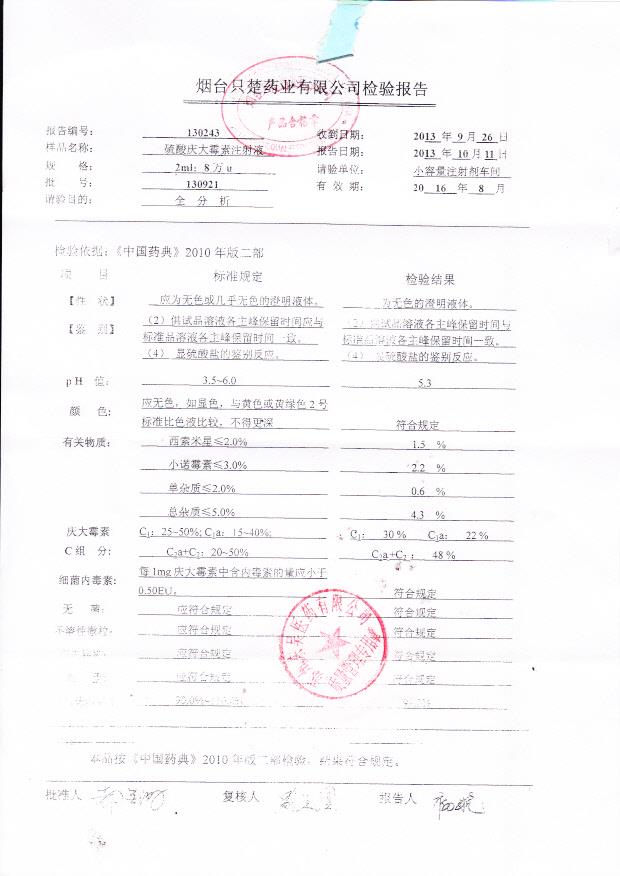 烟台只楚药业有限公司检验报告
产品合格章
报告编号： 130243 收到日期： 2013 年 9 月 26 日
样品名称： 硫酸庆大霉素注射液 报告日期： 2013 年 10 月 11 日
规 格： 2ml：8万u 请验单位： 小容量注射剂车间
批 号： 130921 有 效 期： 20 16 年 8 月
请验目的： 全 分 析
检验依据：《中国药典》2010 年版二部
项 目 标准规定 检验结果
【性 状】 应为无色或几乎无色的澄明液体。 为无色的澄明液体。
【鉴 别】 （2）供试品溶液各主峰保留时间应与 （2）供试品溶液各主峰保留时间与
标准品溶液各主峰保留时间一致。 标准品溶液各主峰保留时间一致。
（4） 显硫酸盐的鉴别反应。 （4） 显硫酸盐的鉴别反应。
pH 值： 3.5~6.0 5.3
颜 色： 应无色，如显色，与黄色或黄绿色 2 号
标准比色液比较，不得更深 符合规定
有关物质： 西索米星≤2.0% 1.5 %
小诺霉素≤3.0% 2.2 %
单杂质≤2.0% 0.6 %
总杂质≤5.0% 4.3 %
庆大霉素 C₁：25~50%; C₁a：15~40%; C₁： 30 % C₁a： 22 %
C 组 分： C₂a+C₂：20~50% C₂a+C₂： 48 %
细菌内毒素： 每 1mg 庆大霉素中含内毒素的量应小于
0.50EU。 符合规定
无 菌： 应符合规定 符合规定
不溶性微粒： 应符合规定 符合规定
应符合规定 符合规定
应符合规定 符合规定
本品按《中国药典》2010 年版二部检验，结果符合规定。
批准人 复核人 报告人